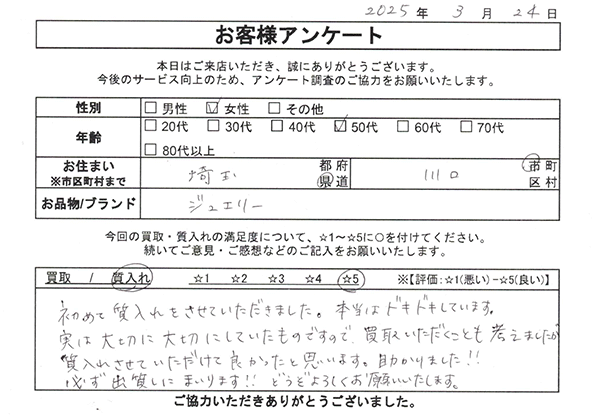 2025 年 3 月 24 日
お客様アンケート
本日はご来店いただき、誠にありがとうございます。
今後のサービス向上のため、アンケート調査のご協力をお願いいたします。
性別 □ 男性 ☑ 女性 □ その他
年齢 □ 20代 □ 30代 □ 40代 ☑ 50代 □ 60代 □ 70代
□ 80代以上
お住まい 埼玉 都 府 県 道 川口 市 町 区 村
※市区町村まで
お品物/ブランド ジュエリー
今回の買取・質入れの満足度について、☆1～☆5に○を付けてください。
続いてご意見・ご感想などのご記入をお願いいたします。
買取 / 質入れ ☆1 ☆2 ☆3 ☆4 ☆5 ※【評価:☆1(悪い)−☆5(良い)】
初めて質入れをさせていただきました。本当はドキドキしています。
実は大切に大切にしていたものですので、買取いただくことも考えましたが
質入れさせていただけて良かったと思います。助かりました!!
必ず出質しにまいります!! どうぞよろしくお願いいたします。
ご協力いただきありがとうございました。